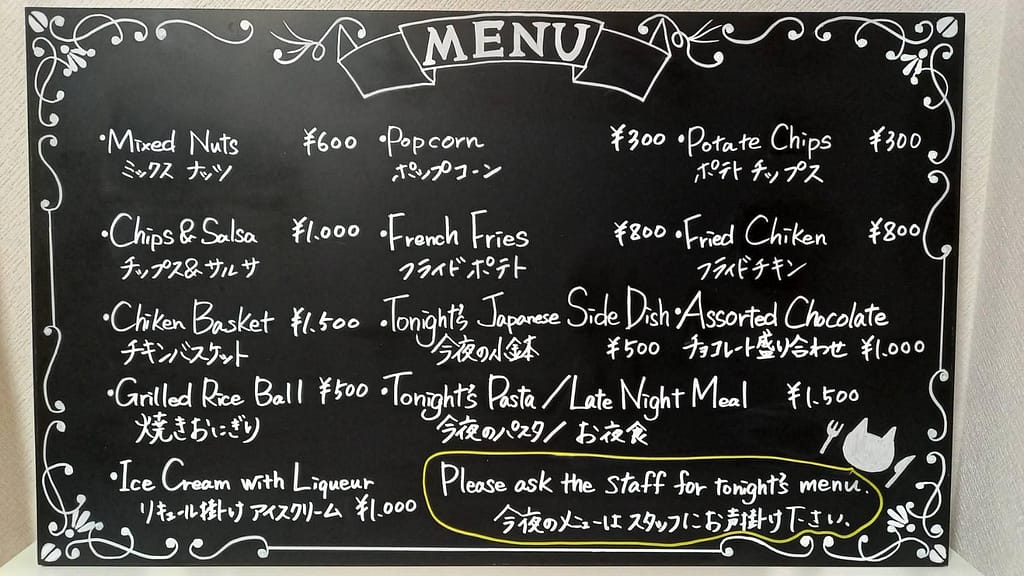 MENU
・Mixed Nuts ¥600
ミックス ナッツ
・Popcorn ¥300
ポップコーン
・Potate Chips ¥300
ポテト チップス
・Chips & Salsa ¥1.000
チップス&サルサ
・French Fries ¥800
フライドポテト
・Fried Chiken ¥800
フライドチキン
・Chiken Basket ¥1.500
チキンバスケット
・Tonight's Japanese Side Dish
今夜の小鉢 ¥500
・Assorted Chocolate
チョコレート盛り合わせ ¥1.000
・Grilled Rice Ball ¥500
焼きおにぎり
・Tonight's Pasta / Late Night Meal ¥1.500
今夜のパスタ/ お夜食
・Ice Cream with Liqueur
リキュール掛け アイスクリーム ¥1.000
Please ask the staff for tonight's menu.
今夜のメニューは スタッフにお声掛け下さい、